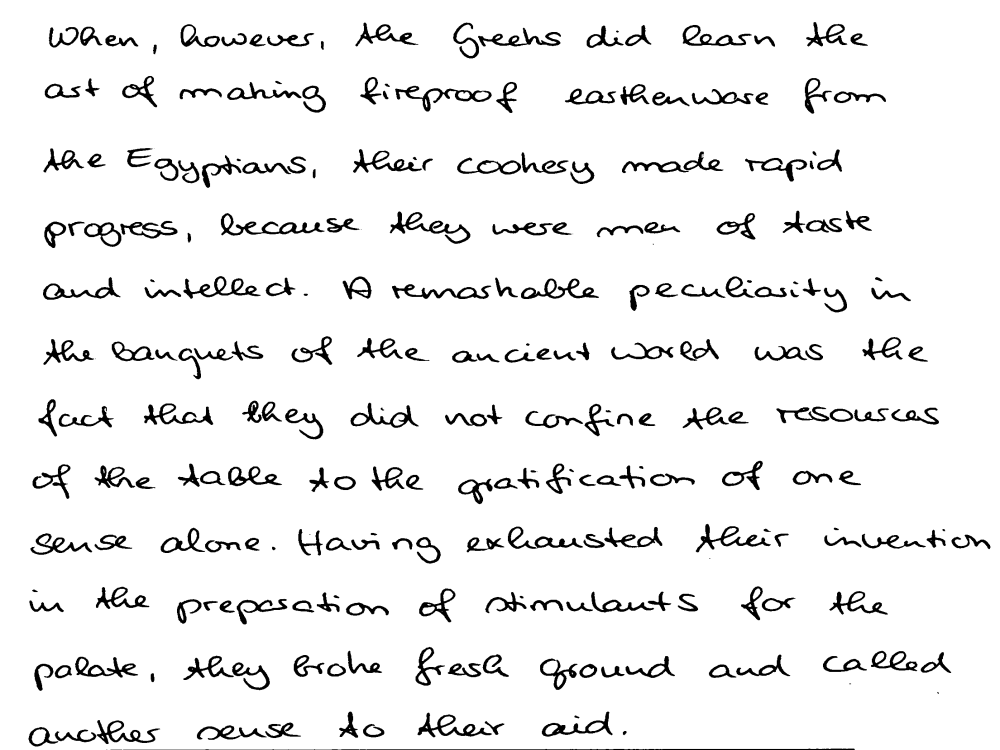 When, however, the Greeks did learn the
art of making fireproof earthenware from
the Egyptians, their cookery made rapid
progress, because they were men of taste
and intellect. A remarkable peculiarity in
the banquets of the ancient world was the
fact that they did not confine the resources
of the table to the gratification of one
sense alone. Having exhausted their invention
in the preparation of stimulants for the
palate, they broke fresh ground and called
another sense to their aid.